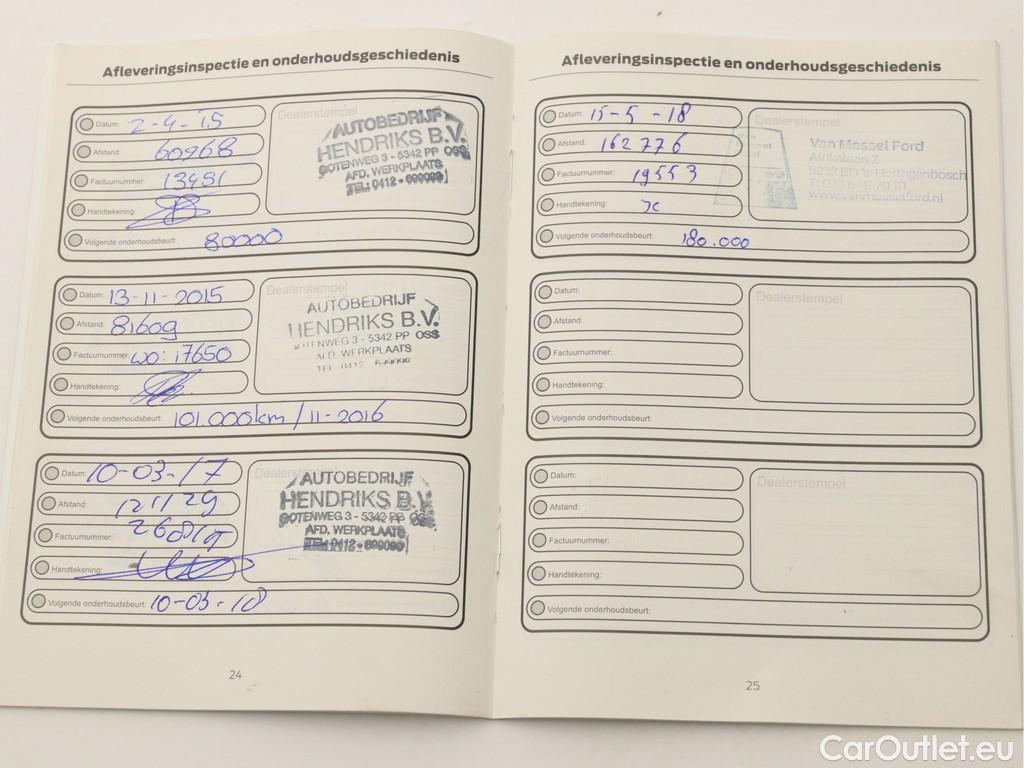 Afleveringsinspectie en onderhoudsgeschiedenis
Datum: 2-4-15
Afstand: 60968
Factuurnummer: 13491
Handtekening:
Volgende onderhoudsbeurt: 80000
Dealerstempel
AUTOBEDRIJF
HENDRIKS B.V.
GOTENWEG 3 - 5342 PP OSS
AFD. WERKPLAATS
TEL: 0412 -
Datum: 13-11-2015
Afstand: 81609
Factuurnummer: WO: 17650
Handtekening:
Volgende onderhoudsbeurt: 101.000km / 11-2016
Dealerstempel
AUTOBEDRIJF
HENDRIKS B.V.
GOTENWEG 3 - 5342 PP OSS
AFD. WERKPLAATS
TEL 0412
Datum: 10-03-17
Afstand: 121129
Factuurnummer:
Handtekening:
Volgende onderhoudsbeurt: 10-03-18
Dealerstempel
AUTOBEDRIJF
HENDRIKS B.V.
GOTENWEG 3 - 5342 PP OSS
AFD. WERKPLAATS
TEL: 0412 -
24
Afleveringsinspectie en onderhoudsgeschiedenis
Datum: 15-5-18
Afstand: 162776
Factuurnummer: 19553
Handtekening:
Volgende onderhoudsbeurt: 180.000
Dealerstempel
Van Mossel Ford
Afrikalaan 2
5232 BD 's-Hertogenbosch
T: 073 648 70 10
www.vanmosselford.nl
Datum:
Afstand:
Factuurnummer:
Handtekening:
Volgende onderhoudsbeurt:
Dealerstempel
Datum:
Afstand:
Factuurnummer:
Handtekening:
Volgende onderhoudsbeurt:
Dealerstempel
25
CarOutlet.eu